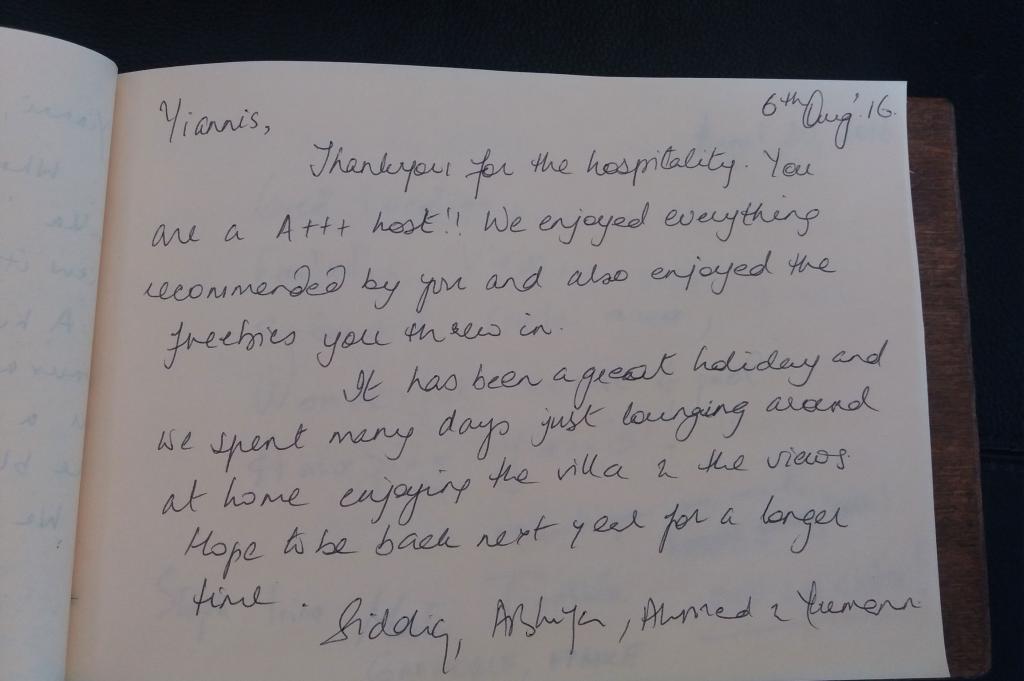 6th Aug' 16.
Yiannis,
Thankyou for the hospitality. You
are a A+++ host!! We enjoyed everything
recommended by you and also enjoyed the
freebies you threw in.
It has been a great holiday and
we spent many days just lounging around
at home enjoying the villa & the views.
Hope to be back next year for a longer
time.
Siddiq, Ahmed &